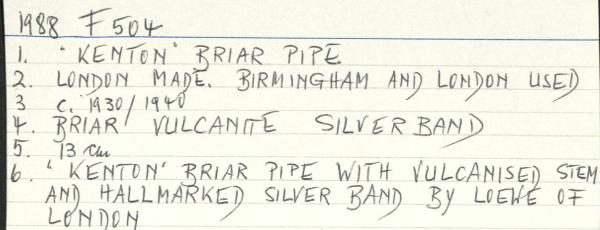 1988 F504
1. 'KENTON' BRIAR PIPE
2. LONDON MADE. BIRMINGHAM AND LONDON USED
3 c. 1930/1940
4. BRIAR VULCANITE SILVER BAND
5. 13 cm
6. 'KENTON' BRIAR PIPE WITH VULCANISED STEM
AND HALLMARKED SILVER BAND BY LOEWE OF
LONDON